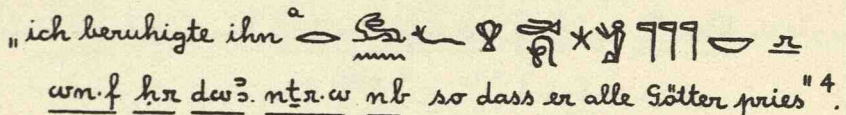 „ich beruhigte ihn a 𓂋 𓃹 𓈖 𓆑 𓁷 𓇼 𓀢 𓊹𓊹𓊹 𓎟 r
wn·f ḥr dwꜣ. nṯr·w nb so dass er alle Götter pries" 4.